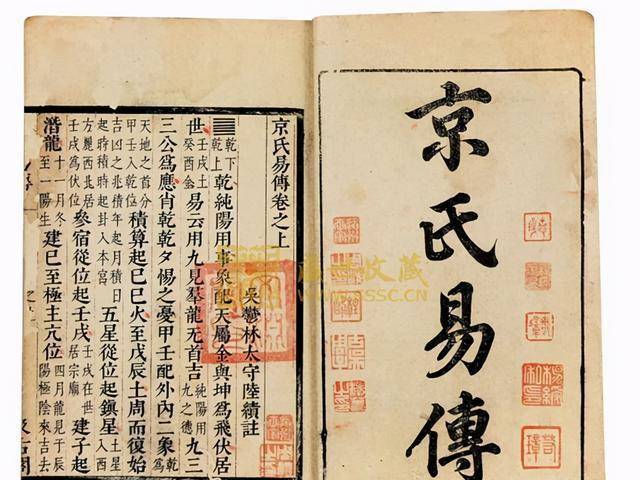 京氏易傳
京氏易傳卷之上
吳鬱林太守陸績註
乾下乾上 乾純陽用事象配天屬金與坤爲飛伏居
世 壬戌土癸酉金 易云用九見羣龍无首吉 純陽用九之德 九三
三公爲應肖乾乾夕惕之憂甲壬配外內二象 乾爲
天地之首分甲壬入乾位 積算起己巳火至戊辰土周而復始
吉凶之兆積年起月積日起時積時起卦入本宮 五星從位起鎮星 土星入西
方麗西北居壬戌爲伏位 參宿從位起壬戌 壬戌在世居宗廟 建子起
潛龍 十一月冬至一陽生 建巳至極主亢位 四月龍見于辰陽極陰來吉去
汲古閣
收藏
SSSC.CN